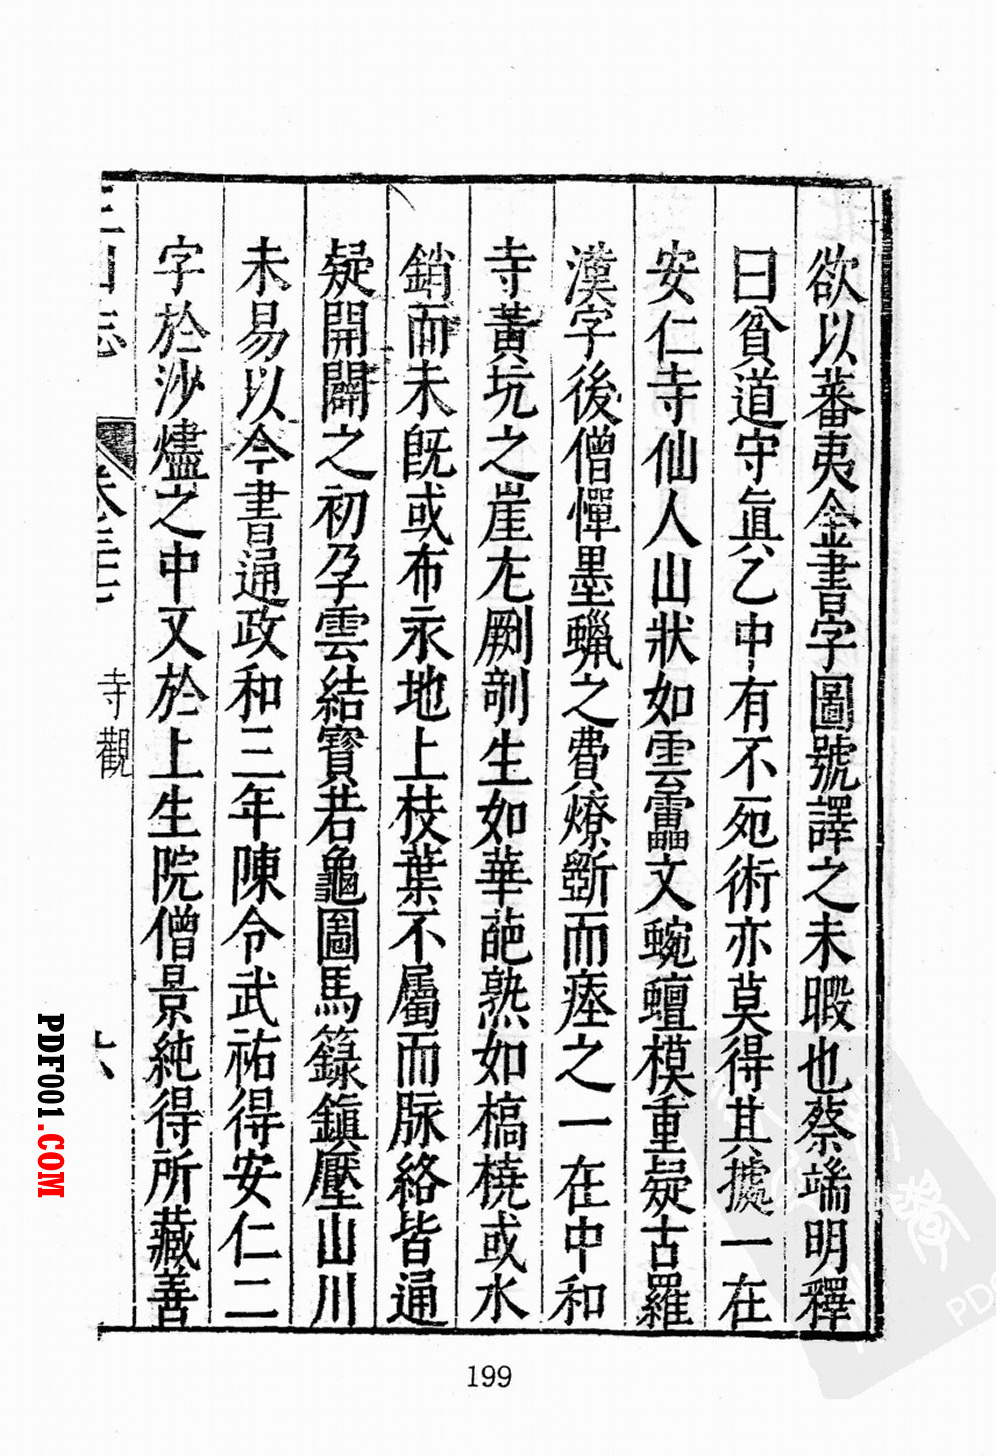 欲以蕃夷金書字圖號譯之未暇也蔡端明釋
曰貧道守眞乙中有不死術亦莫得其據一在
安仁寺仙人山狀如雲靁文蜿蟺模重疑古羅
漢字後僧憚墨蠟之費燎斵而瘞之一在中和
寺黃坑之崖尢劂剞生如華葩熟如槁橈或水
銷而未旣或布示地上枝葉不屬而脉絡皆通
疑開闢之初孕雲結寶若龜圖馬籙鎮壓山川
未易以今書通政和三年陳令武祐得安仁二
字於沙燼之中又於上生院僧景純得所藏善
三山志
寺觀
六
199
PDF001.COM